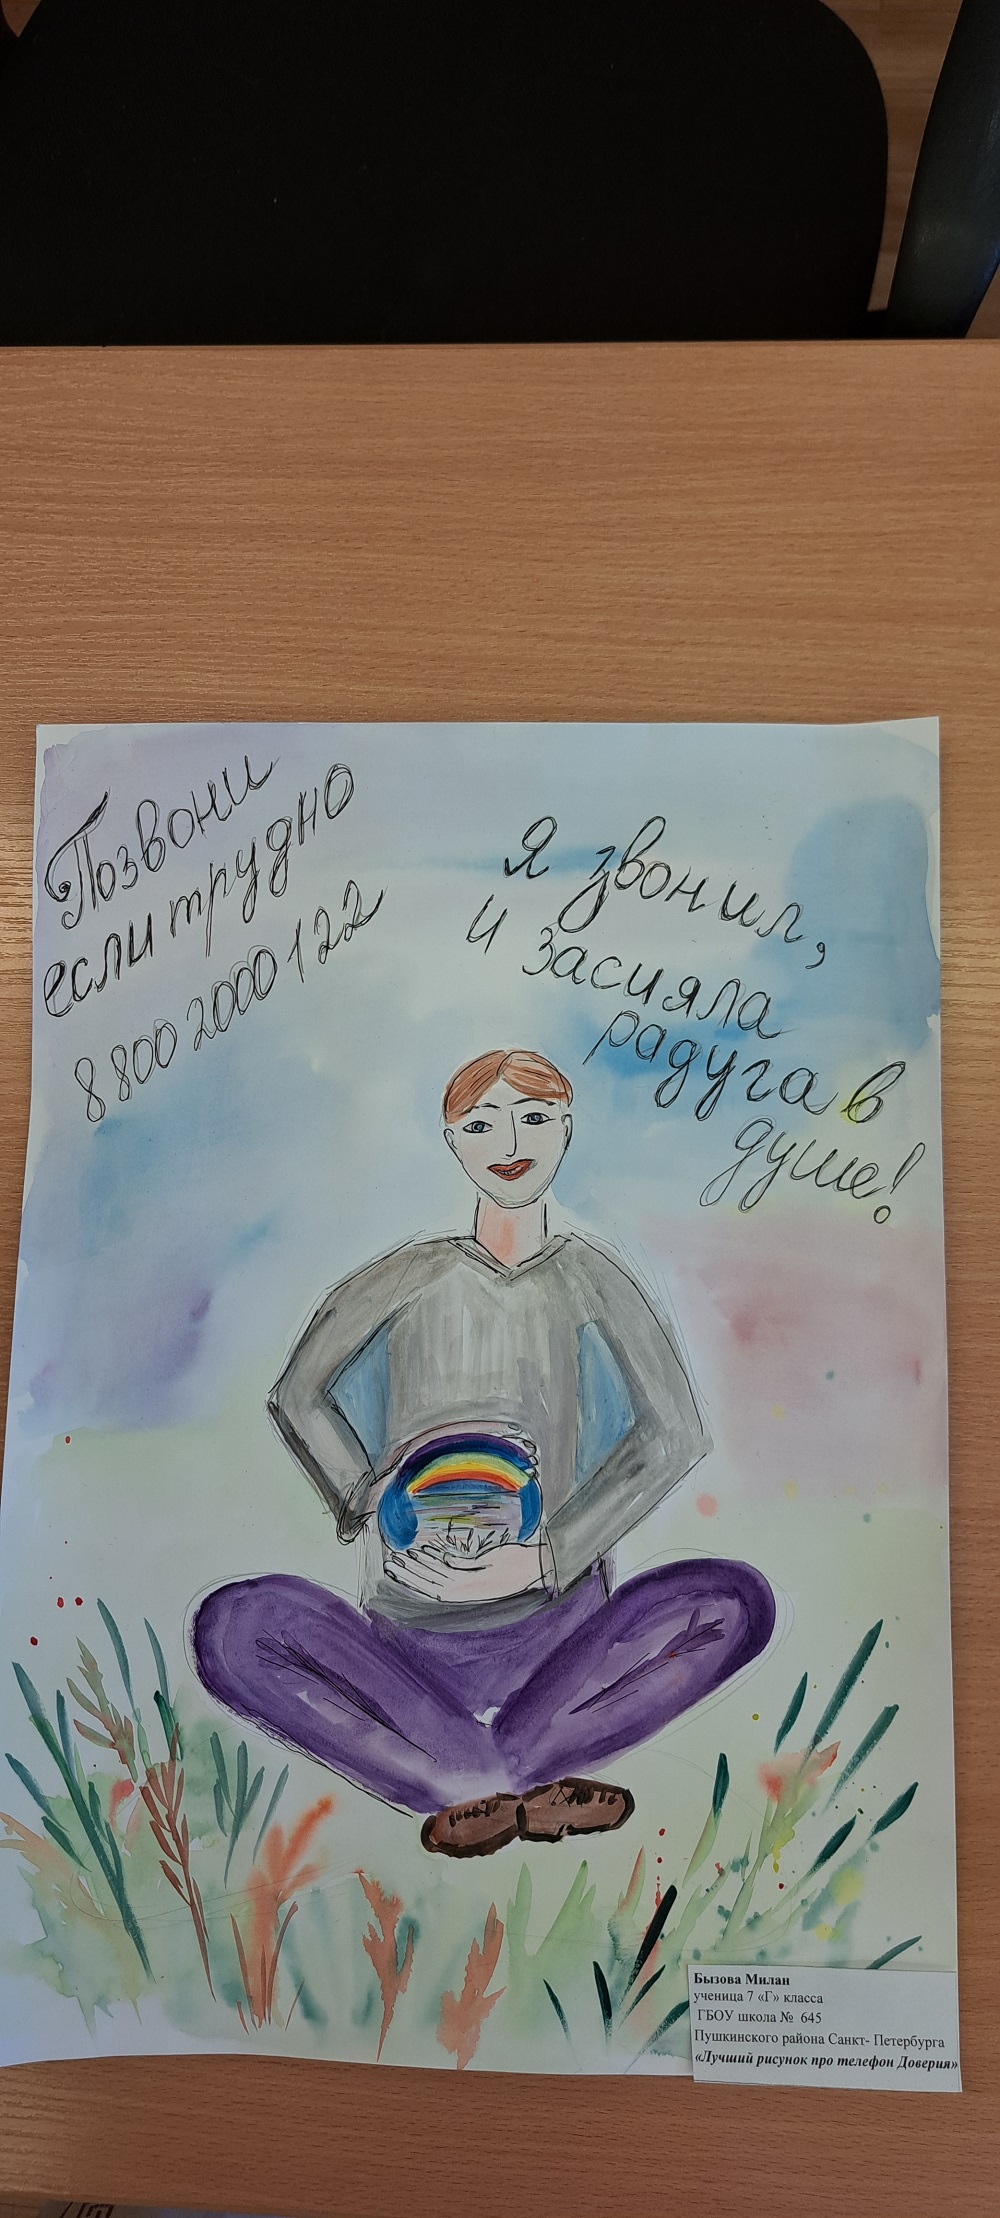 Позвони
если трудно
8 800 2000 122
Я звонил,
и засияла
радуга в
душе!
Бызова Милан
ученица 7 «Г» класса
ГБОУ школа № 645
Пушкинского района Санкт- Петербурга
«Лучший рисунок про телефон Доверия»